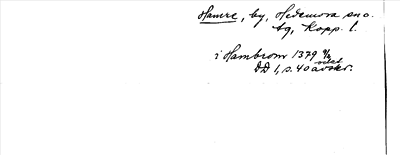 Hamre, by, Hedemora sn o.
tg, Kopp. l.
i Hambrom 1379 4/4
DD 1, s. 40 avskr.